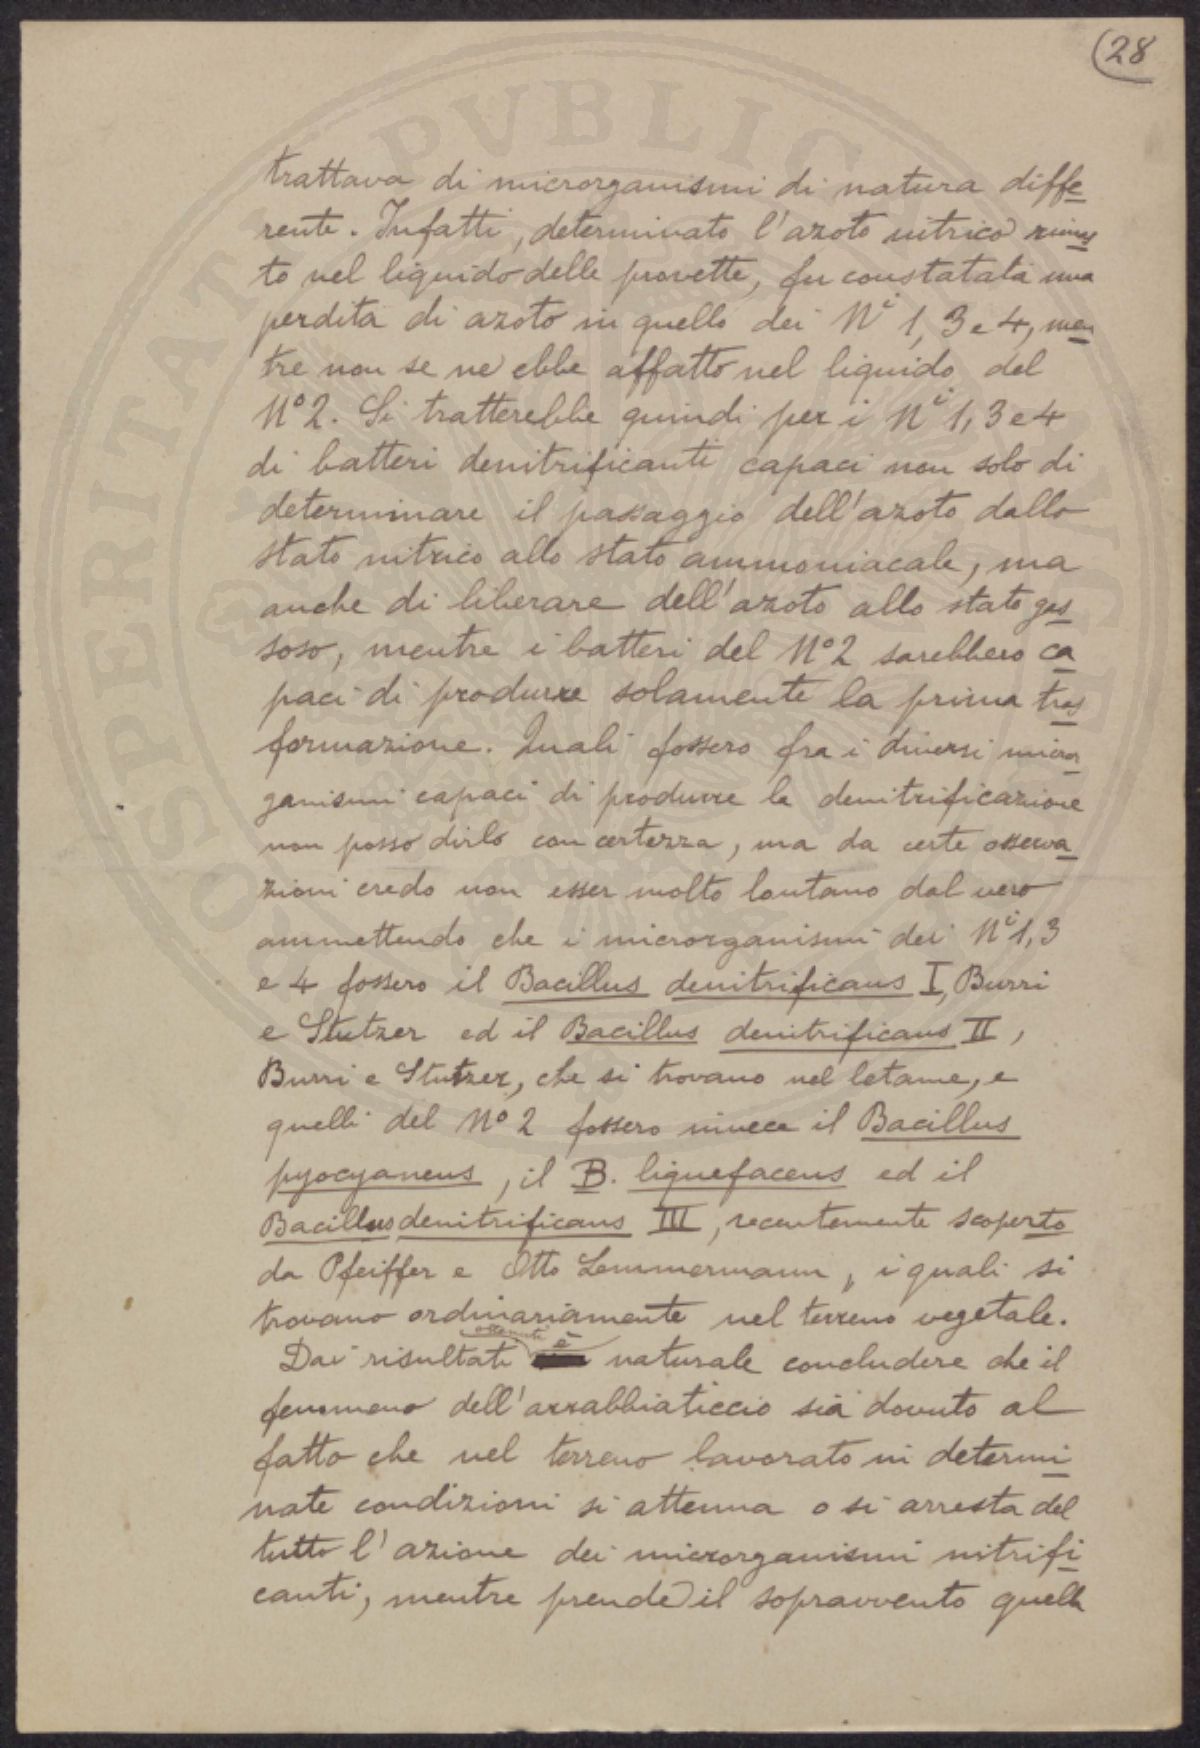 (28
trattava di microrganismi di natura diffe
rente. Infatti, determinato l'azoto nitrico rimas
to nel liquido delle provette, fu constatata una
perdita di azoto in quello dei Ni 1, 3 e 4, men
tre non se ne ebbe affatto nel liquido del
No 2. Si tratterebbe quindi per i Ni 1, 3 e 4
di batteri denitrificanti capaci non solo di
determinare il passaggio dell'azoto dallo
stato nitrico allo stato ammoniacale, ma
anche di liberare dell'azoto allo stato gas
soso, mentre i batteri del No 2 sarebbero ca
paci di produrre solamente la prima tras
formazione. Quali fossero fra i diversi micror
ganismi capaci di produrre la denitrificazione
non posso dirlo con certezza, ma da certe osserva
zioni credo non esser molto lontano dal vero
ammettendo che i microrganismi dei Ni 1, 3
e 4 fossero il Bacillus denitrificans I, Burri
e Stutzer ed il Bacillus denitrificans II,
Burri e Stutzer, che si trovano nel letame, e
quelli del No 2 fossero invece il Bacillus
pyocyaneus, il B. liquefacens ed il
Bacillus denitrificans III, recentemente scoperto
da Pfeiffer e Otto Lemmermann, i quali si
trovano ordinariamente nel terreno vegetale.
Dai risultati ottenuti è naturale concludere che il
fenomeno dell'arrabbiaticcio sia dovuto al
fatto che nel terreno lavorato in determi
nate condizioni si attenua o si arresta del
tutto l'azione dei microrganismi nitrifi
canti, mentre prende il sopravvento quella
PROSPERITATI PVBLICAE